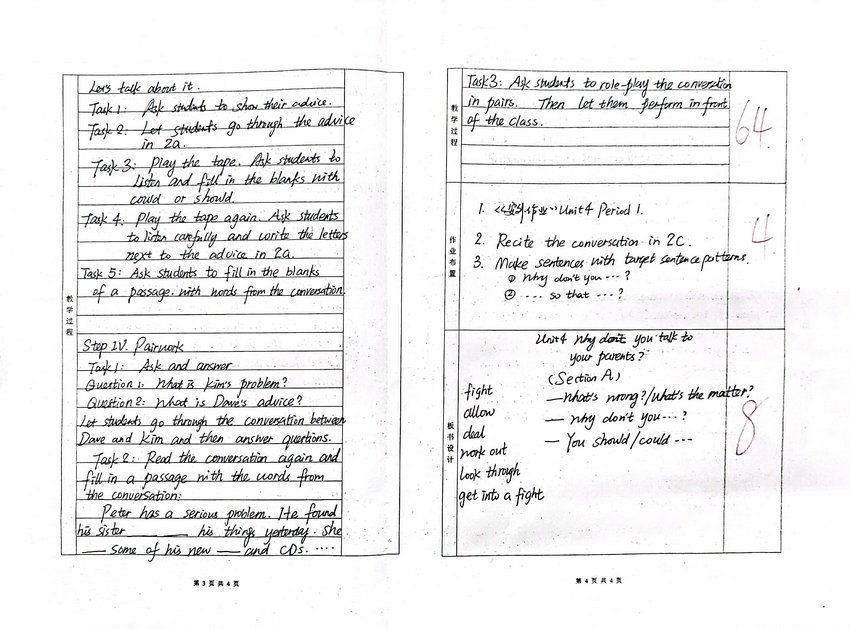 Let's talk about it.
Task 1: Ask students to show their advice.
Task 2: Let students go through the advice
in 2a.
Task 3: Play the tape. Ask students to
listen and fill in the blanks with
could or should.
Task 4: Play the tape again. Ask students
to listen carefully and write the letters
next to the advice in 2a.
Task 5: Ask students to fill in the blanks
of a passage with words from the conversation.
教学过程
Step IV. Pairwork
Task 1: Ask and answer
Question 1: What is Kim's problem?
Question 2: What is Dave's advice?
Let students go through the conversation between
Dave and Kim and then answer questions.
Task 2: Read the conversation again and
fill in a passage with the words from
the conversation:
Peter has a serious problem. He found
his sister ______ his things yesterday. She
___ some of his new ___ and CDs. ....
第 3 页 共 4 页
Task 3: Ask students to role-play the conversation
in pairs. Then let them perform in front
of the class.
教学过程
64
1. 作业 Unit 4 Period 1.
2. Recite the conversation in 2C.
3. Make sentences with target sentence patterns.
① Why don't you ...?
② .... so that ...?
作业布置
4
Unit 4 Why don't you talk to
your parents?
(Section A)
fight
allow
deal
work out
look through
get into a fight
— What's wrong?/What's the matter?
— Why don't you ...?
— You should/could ...
板书设计
8
第 4 页 共 4 页